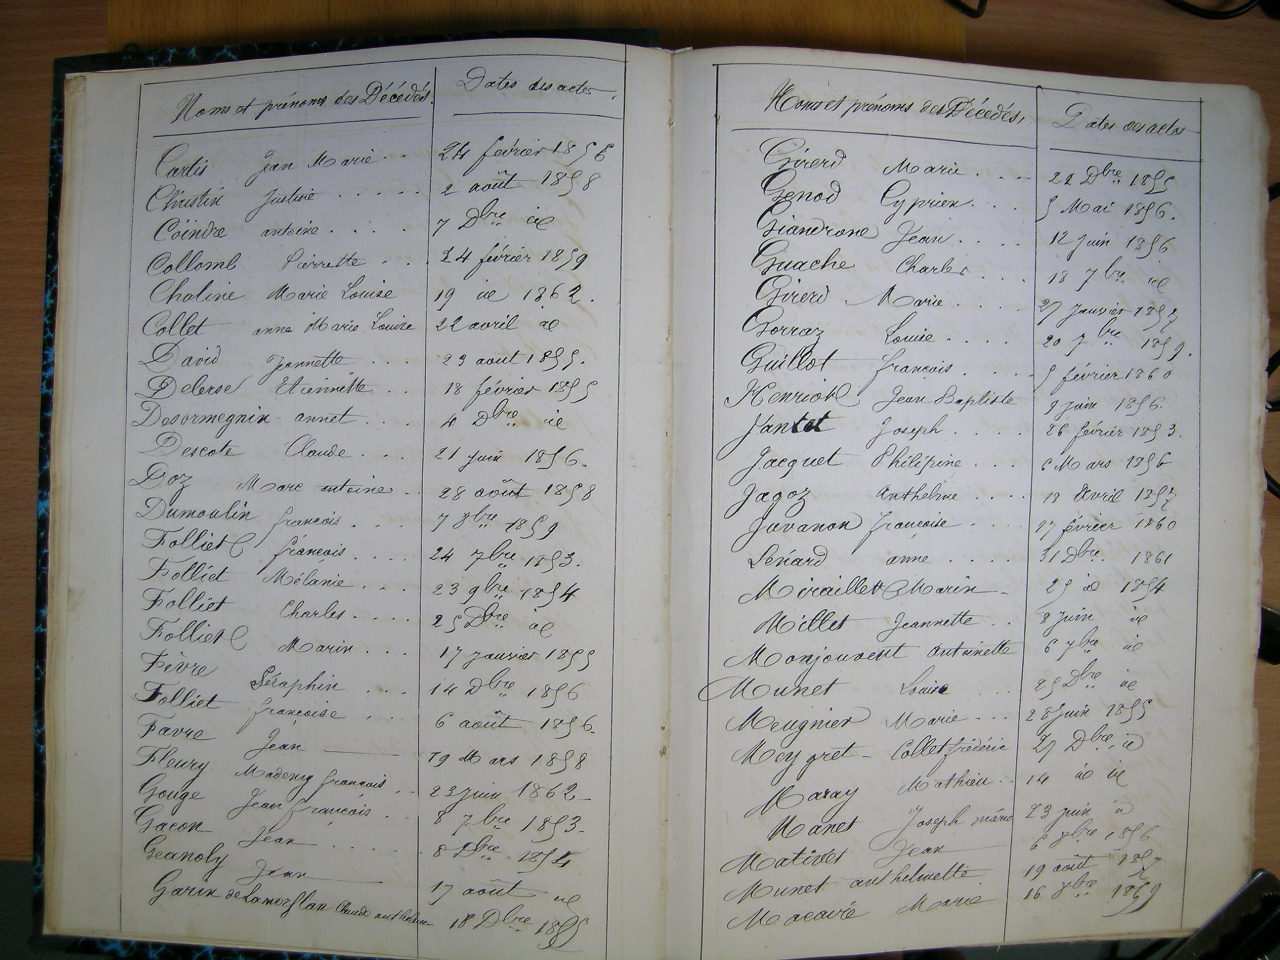 Noms et prénoms des Décédés. Dates des actes.
Cartis Jean Marie . . 24 février 1856
Christin Justine . . . . . 2 août 1858
Coindre antoine . . . . 7 Dbre id
Collomb Pierrette . . . 24 février 1859
Choline Marie Louise 19 id 1862.
Collet anne Marie Louise 22 avril id
David Jeannette . . . 23 aout 1855.
Deberse Etiennette . . 18 février 1855
Desormegnin annet . . . . 4 Dbre id
Descote Claude . . . 21 juin 1856.
Doz Marc antoine . . 28 août 1858
Dumoulin françois . . . . 7 8bre 1859
Folliet françois . . . . 24 7bre 1853.
Folliet Mélanie . . . . 23 9bre 1854
Folliet Charles . . . . 25 Dbre id
Folliet Marin . . . 17 janvier 1855
Fèvre Séraphin . . . 14 Dbre 1856
Folliet françoise . . . . 6 août 1856.
Favre Jean 19 Mars 1858
Fleury françois . . 23 juin 1862
Gouge Jean françois . . . 8 7bre 1853.
Gacon Jean . . . . . 8 Dbre 1854
Geanoly Jean 17 août id
Garin de Lamorflan Claude anthelme 18 Dbre 1855
Noms et prénoms des Décédés, Dates des actes
Girerd Marie . . . . 22 Dbre 1855
Genod Cyprien . . . 5 Mai 1856.
Giandrone Jean . . . . 12 juin 1856
Guache Charles . . . 18 7bre id
Girerd Marie . . . . 27 janvier 1857
Gorraz Louise . . . . 20 7bre 1859.
Guillot françois . . . . 5 février 1860
Henriot Jean Baptiste 9 juin 1856.
Jantet Joseph . . . . 26 février 1853.
Jacquet Philipine . . . 2 Mars 1856
Jagoz Anthelme . . . . 12 Avril 1857
Juvanon françoise . . . . 27 février 1860
Lénard anne . . . . 31 Dbre 1861
Miraillet Marin 25 id 1854
Millet Jeannette . . 8 juin id
Monjouvent antoinette 6 7bre id
Munet Louise . . . 25 Dbre id
Meugnier Marie . . . 28 juin 1855
Meygret Collet frédéric 27 Dbre id
Maray Mathieu . . 14 id id
Manet Joseph marie 23 juin id
Mativet Jean 6 8bre 1856
Munet anthelmette . 19 août 1857
Macaire Marie 16 8bre 1859